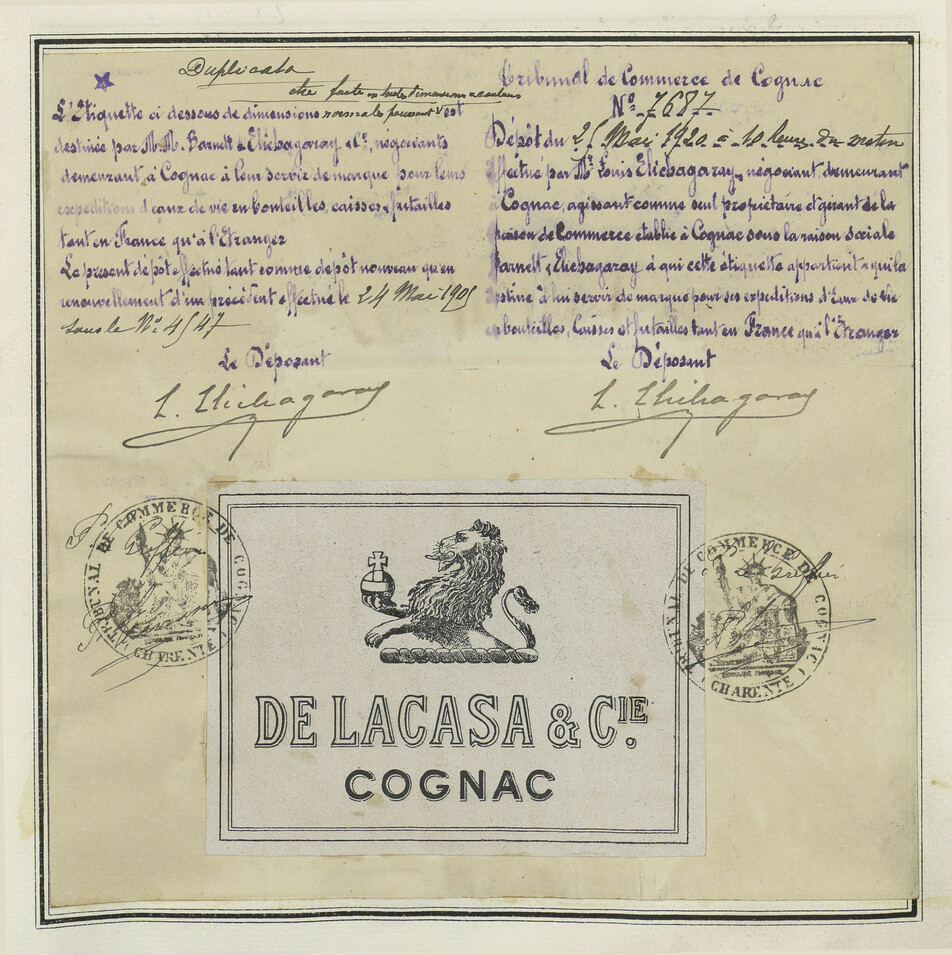 Duplicata
être faite en toutes dimensions & couleurs
L'Etiquette ci dessous de dimensions normales pouvant est
destinée par M.M. Barnett & Elichagaray & Cie, négociants
demeurant à Cognac à leur servir de marque pour leurs
expéditions d'eaux de vie en bouteilles, caisses & futailles
tant en France qu'à l'Etranger
Le présent dépôt effectué tant comme dépôt nouveau qu'en
renouvellement d'un précédent effectué le 24 Mai 1905
sous le No 4547
Le Déposant
L. Elichagaray
Tribunal de Commerce de Cognac
No 7687
Dépôt du 25 Mai 1920 à 10 heures du matin
effectué par Mr Louis Elichagaray, négociant, demeurant
à Cognac, agissant comme seul propriétaire et gérant de la
maison de Commerce établie à Cognac sous la raison sociale
Barnett & Elichagaray à qui cette étiquette appartient & qui la
destine à lui servir de marque pour ses expéditions d'Eaux de Vie
en bouteilles, Caisses et futailles tant en France qu'à l'Etranger
Le Déposant
L. Elichagaray
TRIBUNAL DE COMMERCE DE COGNAC
CHARENTE
DE LACASA & CIE
COGNAC
TRIBUNAL DE COMMERCE DE COGNAC
CHARENTE